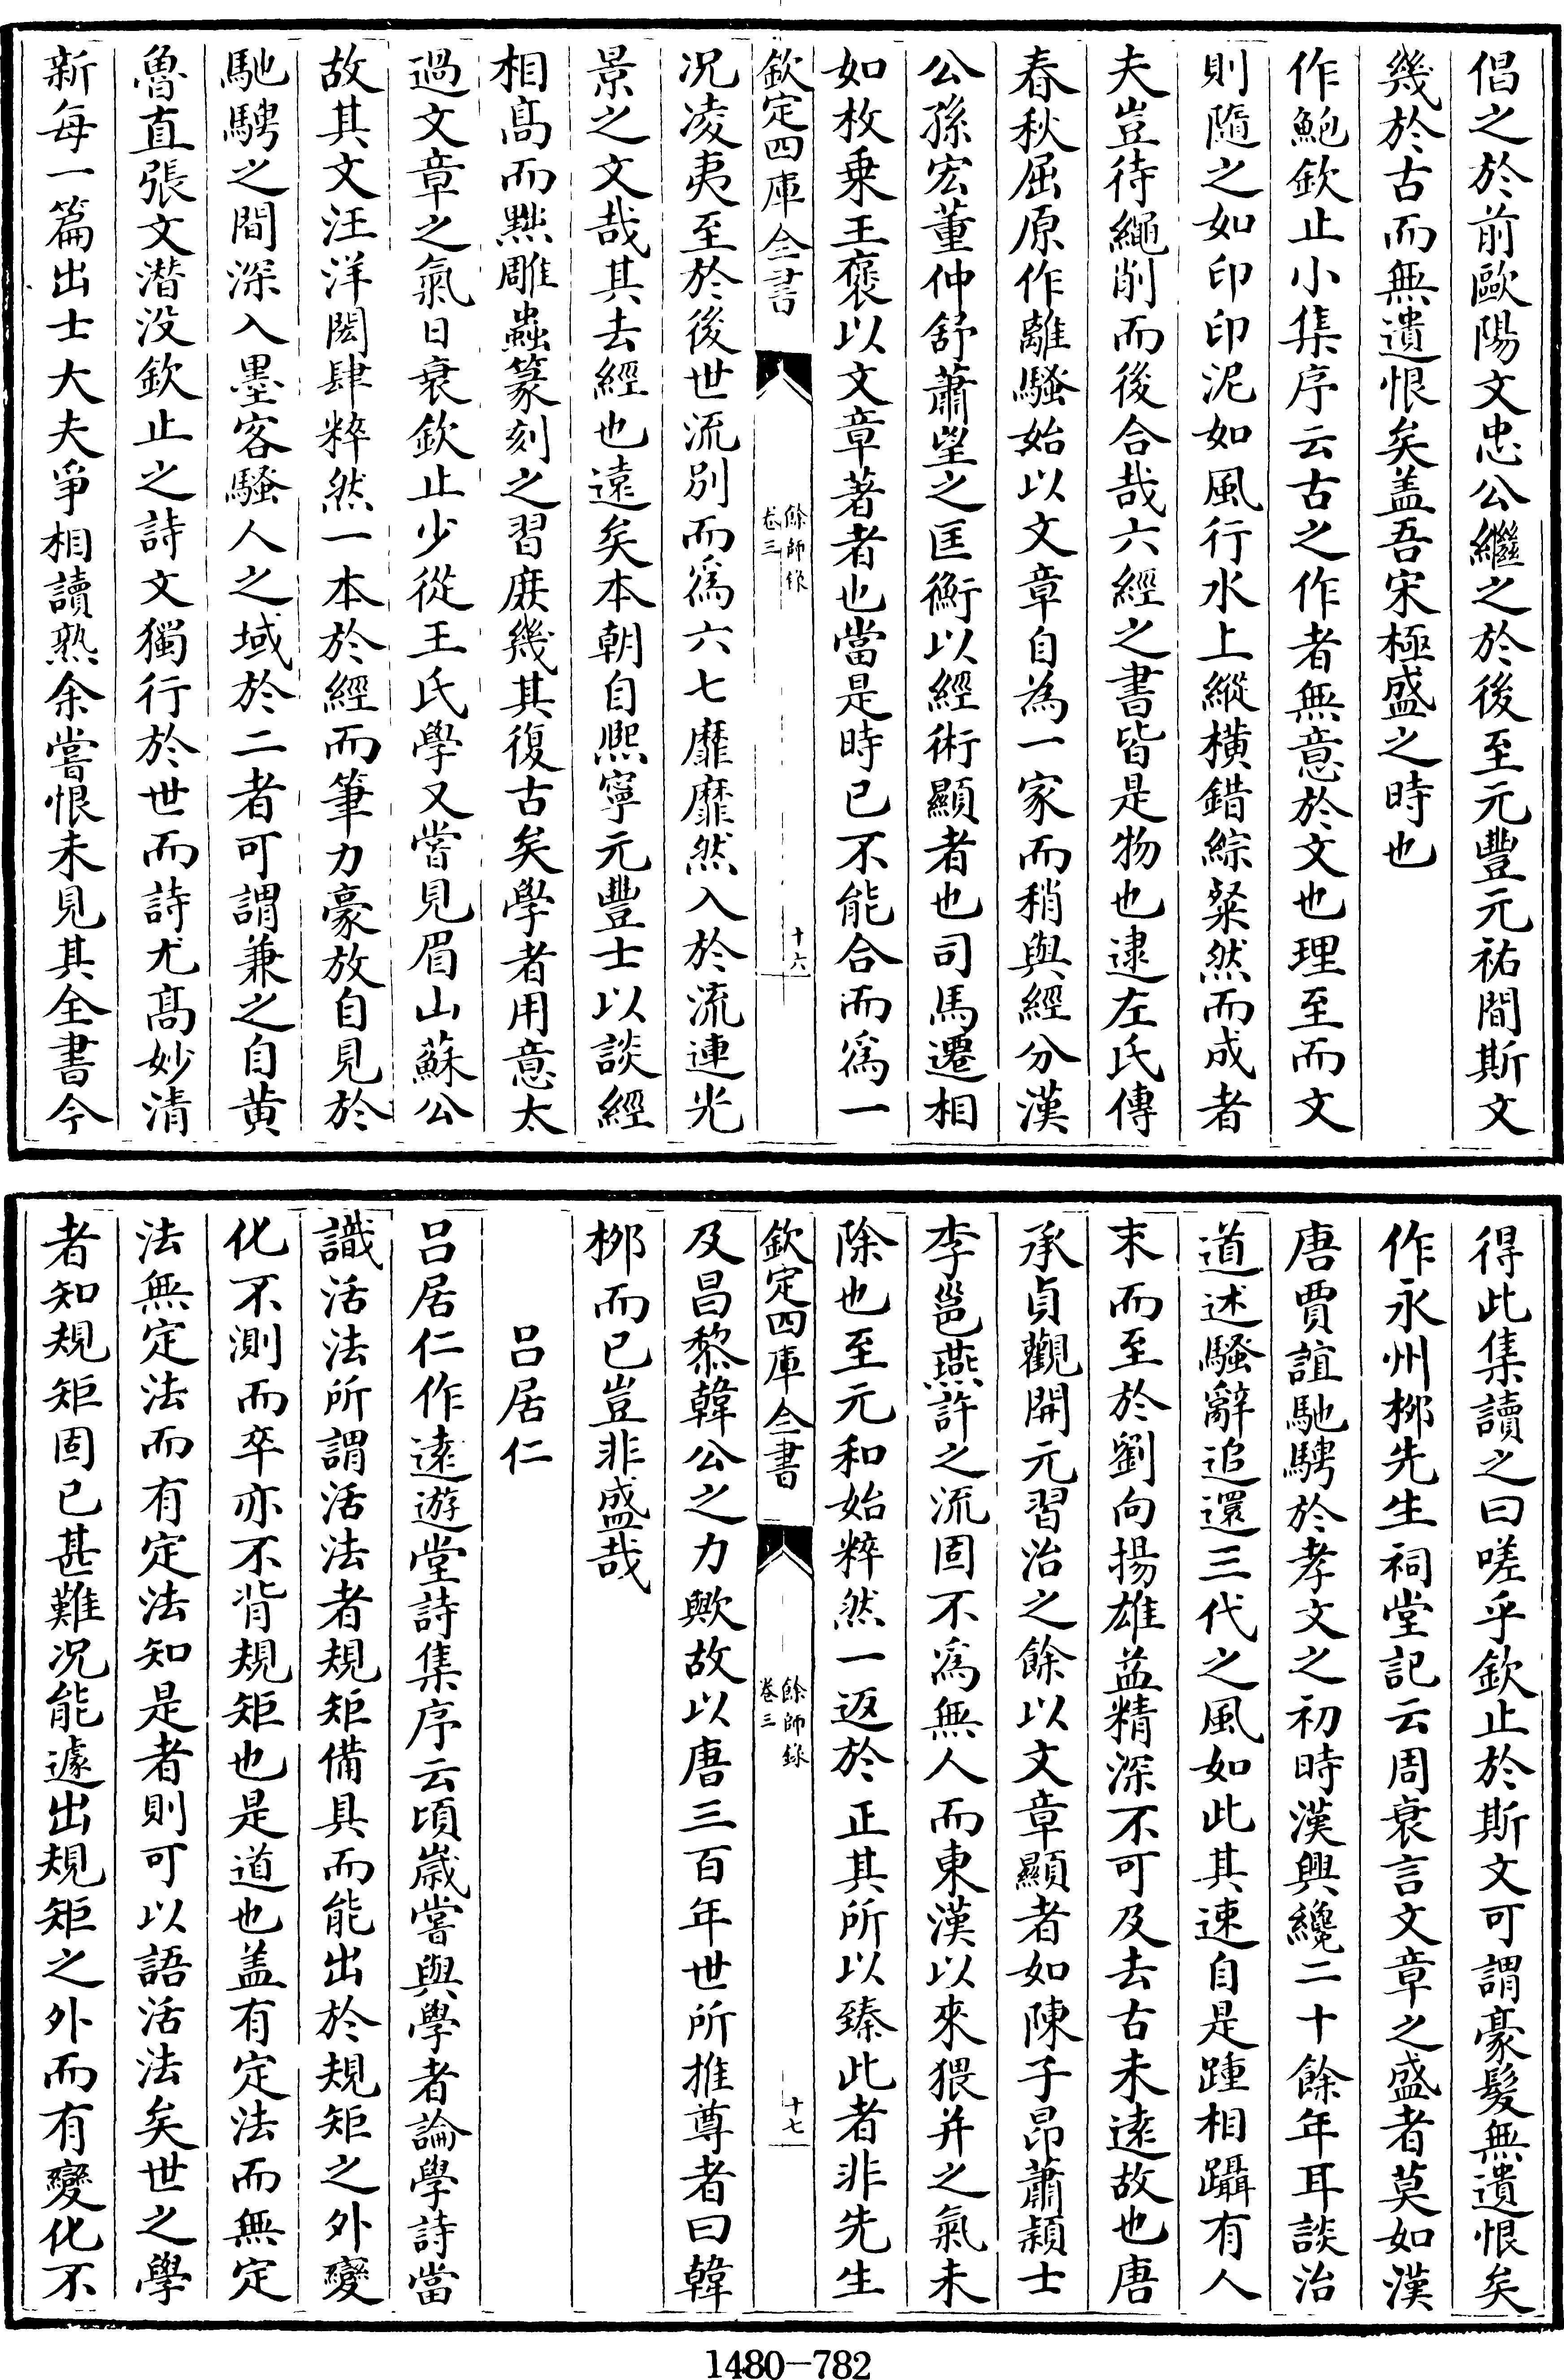 倡之於前歐陽文忠公繼之於後至元豐元祐間斯文
幾於古而無遺恨矣盖吾宋極盛之時也
作鮑欽止小集序云古之作者無意於文也理至而文
則隨之如印印泥如風行水上縱橫錯綜粲然而成者
夫豈待繩削而後合哉六經之書皆是物也逮左氏傳
春秋屈原作離騷始以文章自為一家而稍與經分漢
公孫宏董仲舒蕭望之匡衡以經術顯者也司馬遷相
如枚乗王褒以文章著者也當是時已不能合而爲一
欽定四庫全書
餘師錄
卷三
十六
况凌夷至於後世流别而爲六七靡靡然入於流連光
景之文哉其去經也遠矣本朝自熙寧元豐士以談經
相髙而黜雕蟲篆刻之習庻幾其復古矣學者用意太
過文章之氣日衰欽止少從王氏學又嘗見眉山蘇公
故其文汪洋閎肆粹然一本於經而筆力豪放自見於
馳騁之間深入墨客騷人之域於二者可謂兼之自黄
魯直張文潛没欽止之詩文獨行於世而詩尤髙妙清
新每一篇出士大夫爭相讀熟余嘗恨未見其全書今
得此集讀之曰嗟乎欽止於斯文可謂豪髮無遺恨矣
作永州栁先生祠堂記云周衰言文章之盛者莫如漢
唐賈誼馳騁於孝文之初時漢興纔二十餘年耳談治
道述騷辭追還三代之風如此其速自是踵相躡有人
末而至於劉向揚雄益精深不可及去古未逺故也唐
承貞觀開元習治之餘以文章顯者如陳子昂蕭潁士
李邕燕許之流固不爲無人而東漢以來猥并之氣未
除也至元和始粹然一返於正其所以臻此者非先生
欽定四庫全書
餘師錄
卷三
十七
及昌黎韓公之力歟故以唐三百年世所推尊者曰韓
栁而已豈非盛哉
呂居仁
呂居仁作逺遊堂詩集序云頃嵗嘗與學者論學詩當
識活法所謂活法者規矩備具而能出於規矩之外變
化不測而卒亦不背規矩也是道也盖有定法而無定
法無定法而有定法知是者則可以語活法矣世之學
者知規矩固已甚難况能遽出規矩之外而有變化不
1480—782